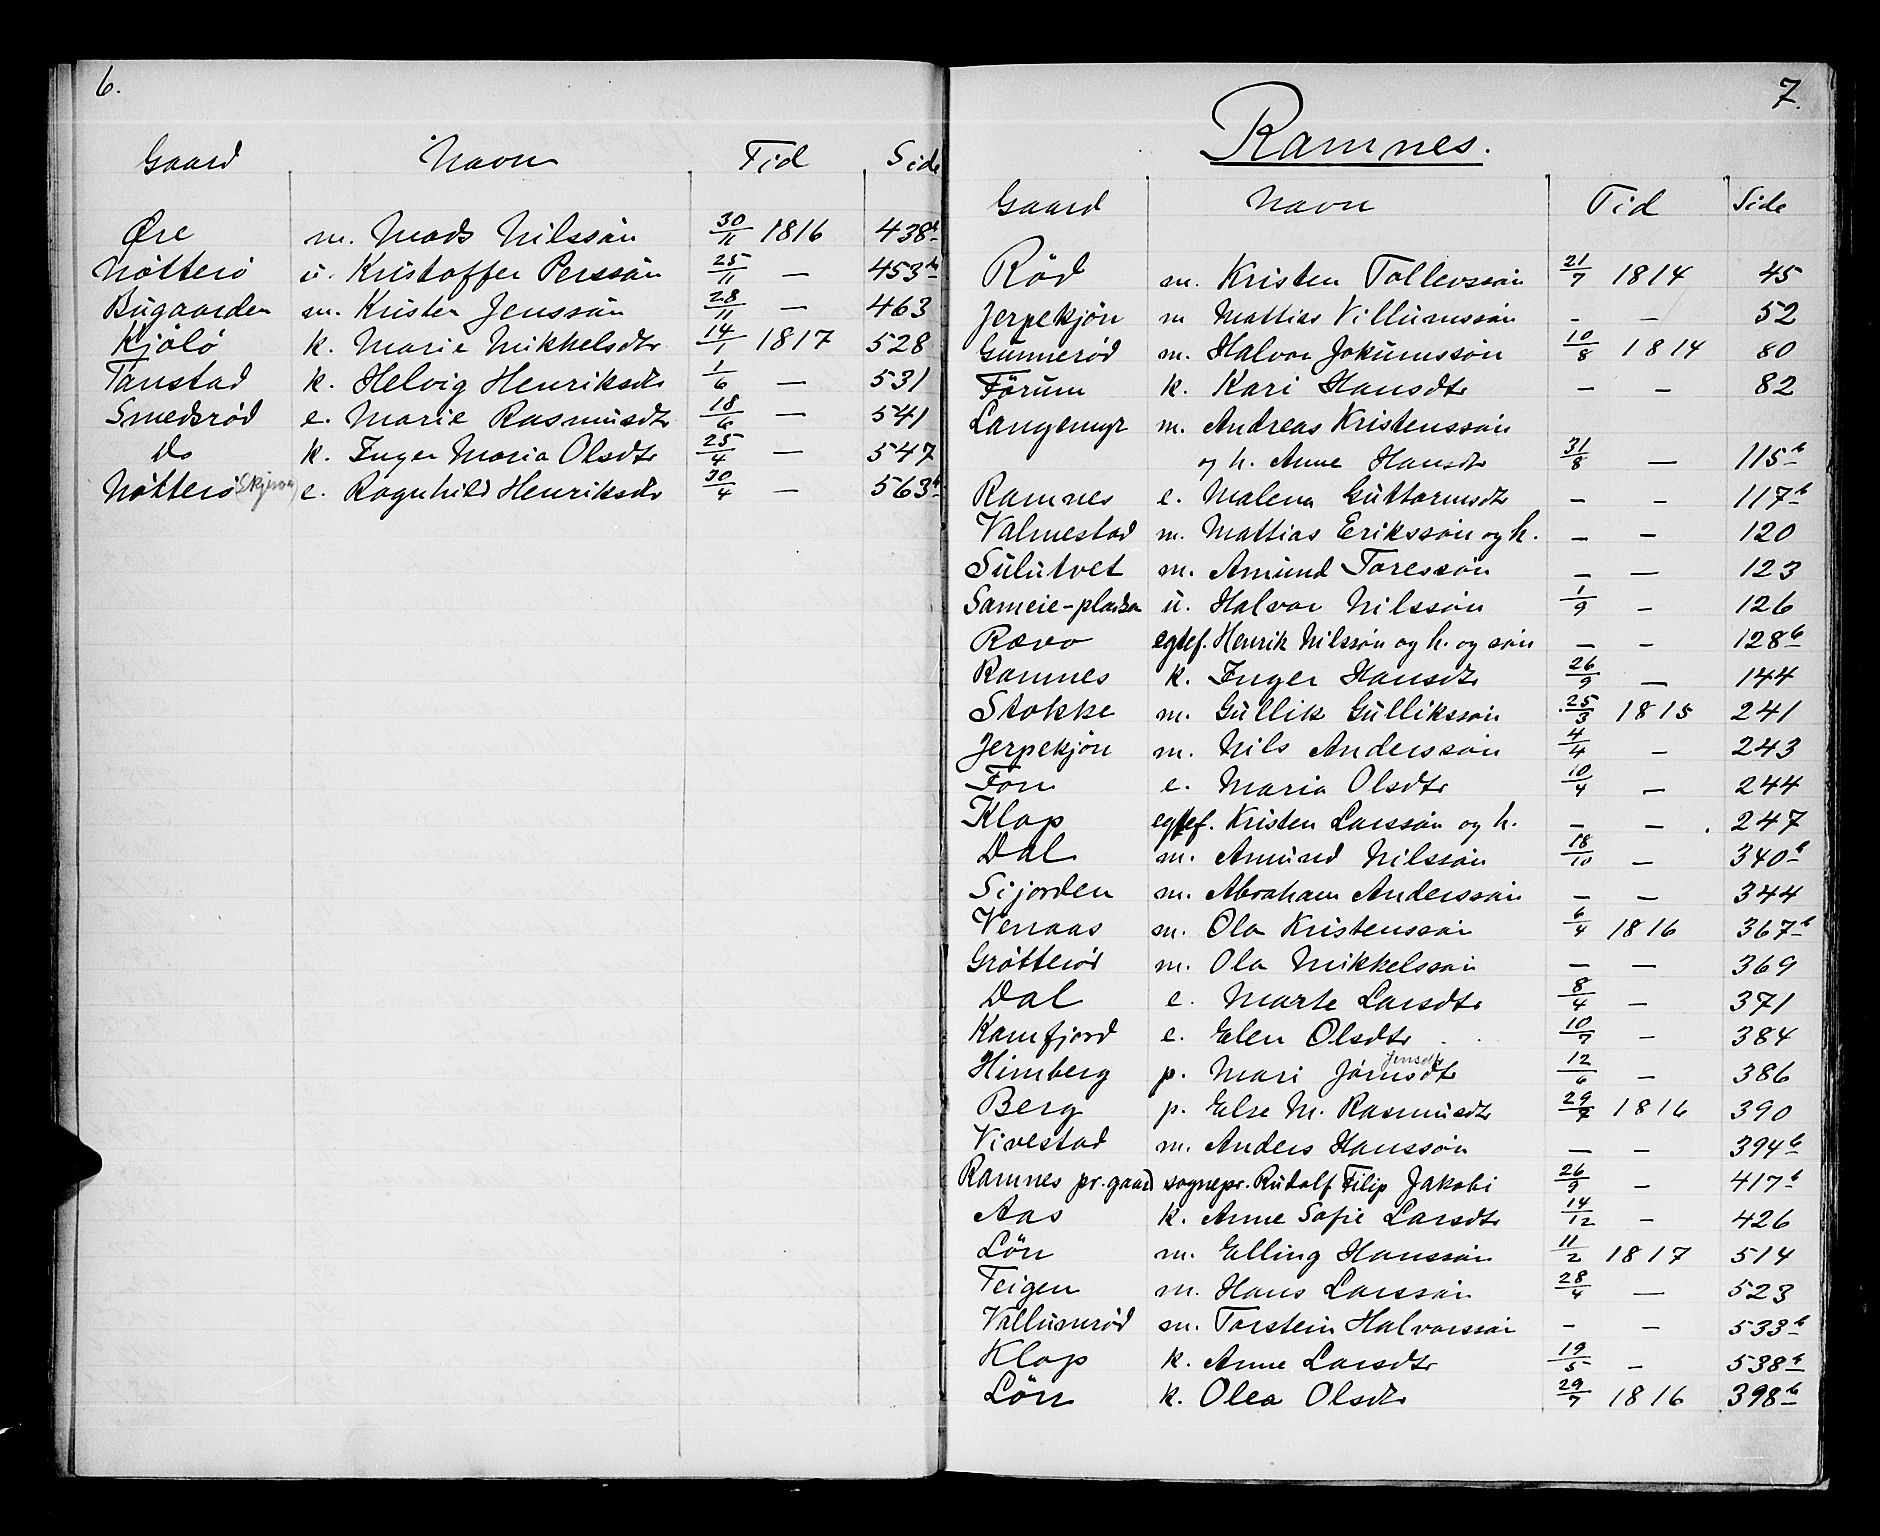 6.
Gaard Navn Tid Side
Øre m. Mads Nilssøn 30/11 1816 438b
Nøtterø u. Kristoffer Perssøn 25/11 — 453b
Bugaarden m. Kristen Jenssøn 28/11 — 463
Kjølø k. Marie Mikkelsdtr 14/1 1817 528
Tanstad k. Helvig Henriksdtr 1/6 — 531
Smedsrød e. Marie Rasmusdtr 18/6 — 541
Do k. Inger Maria Olsdtr 25/4 — 547
Nøtterø (Skjerve) e. Ragnhild Henriksdtr 30/4 — 563b
7.
Ramnes.
Gaard Navn Tid Side
Rød m. Kristen Tollevssøn 21/7 1814 45
Jerpekjøn m Mattias Villumssøn — — 52
Gunnerød m. Halvor Jokumssøn 10/8 1814 80
Førum k. Kari Hansdtr — — 82
Langemyr m. Andreas Kristenssøn
og h. Anne Hansdtr 31/8 — 115b
Ramnes e. Malena Guttormsdtr — — 117b
Valmestad m. Mattias Erikssøn og h. — — 120
Sulutvet m. Amund Toressøn — — 123
Sameie-pladsen u. Halvor Nilssøn 1/9 — 126
Rævo egtef. Henrik Nilssøn og h. og søn — — 128b
Ramnes k. Inger Hansdtr 26/9 — 144
Stokke m. Gullik Gullikssøn 25/3 1815 241
Jerpekjøn m. Nils Anderssøn 4/4 — 243
Fon e. Maria Olsdtr 10/4 — 244
Klop egtef. Kristen Larssøn og h. — — 247
Dal m. Amund Nilssøn 18/10 — 340b
Sijorden m. Abraham Anderssøn — — 344
Venaas m. Ola Kristenssøn 6/4 1816 367b
Grøtterød m. Ola Mikkelssøn — — 369
Dal e. Marte Larsdtr 8/4 — 371
Kamfjord e. Elen Olsdtr 10/7 — 384
Himberg p. Mari Jørnsdtr Jensdtr 12/6 — 386
Berg p. Else M. Rasmusdtr 29/7 1816 390
Vivestad m. Anders Hanssøn — — 394b
Ramnes pr. gaard sognepr. Rudolf Filip Jakobi 26/9 — 417b
Aas k. Anne Sofie Larsdtr 14/12 — 426
Løn m. Elling Hanssøn 11/2 1817 514
Teigen m. Hans Larssøn 28/4 — 523
Vallumrød m. Torstein Halvorssøn — — 533b
Klop k. Anne Larsdtr 19/5 — 538b
Løn k. Olea Olsdtr 29/7 1816 398b